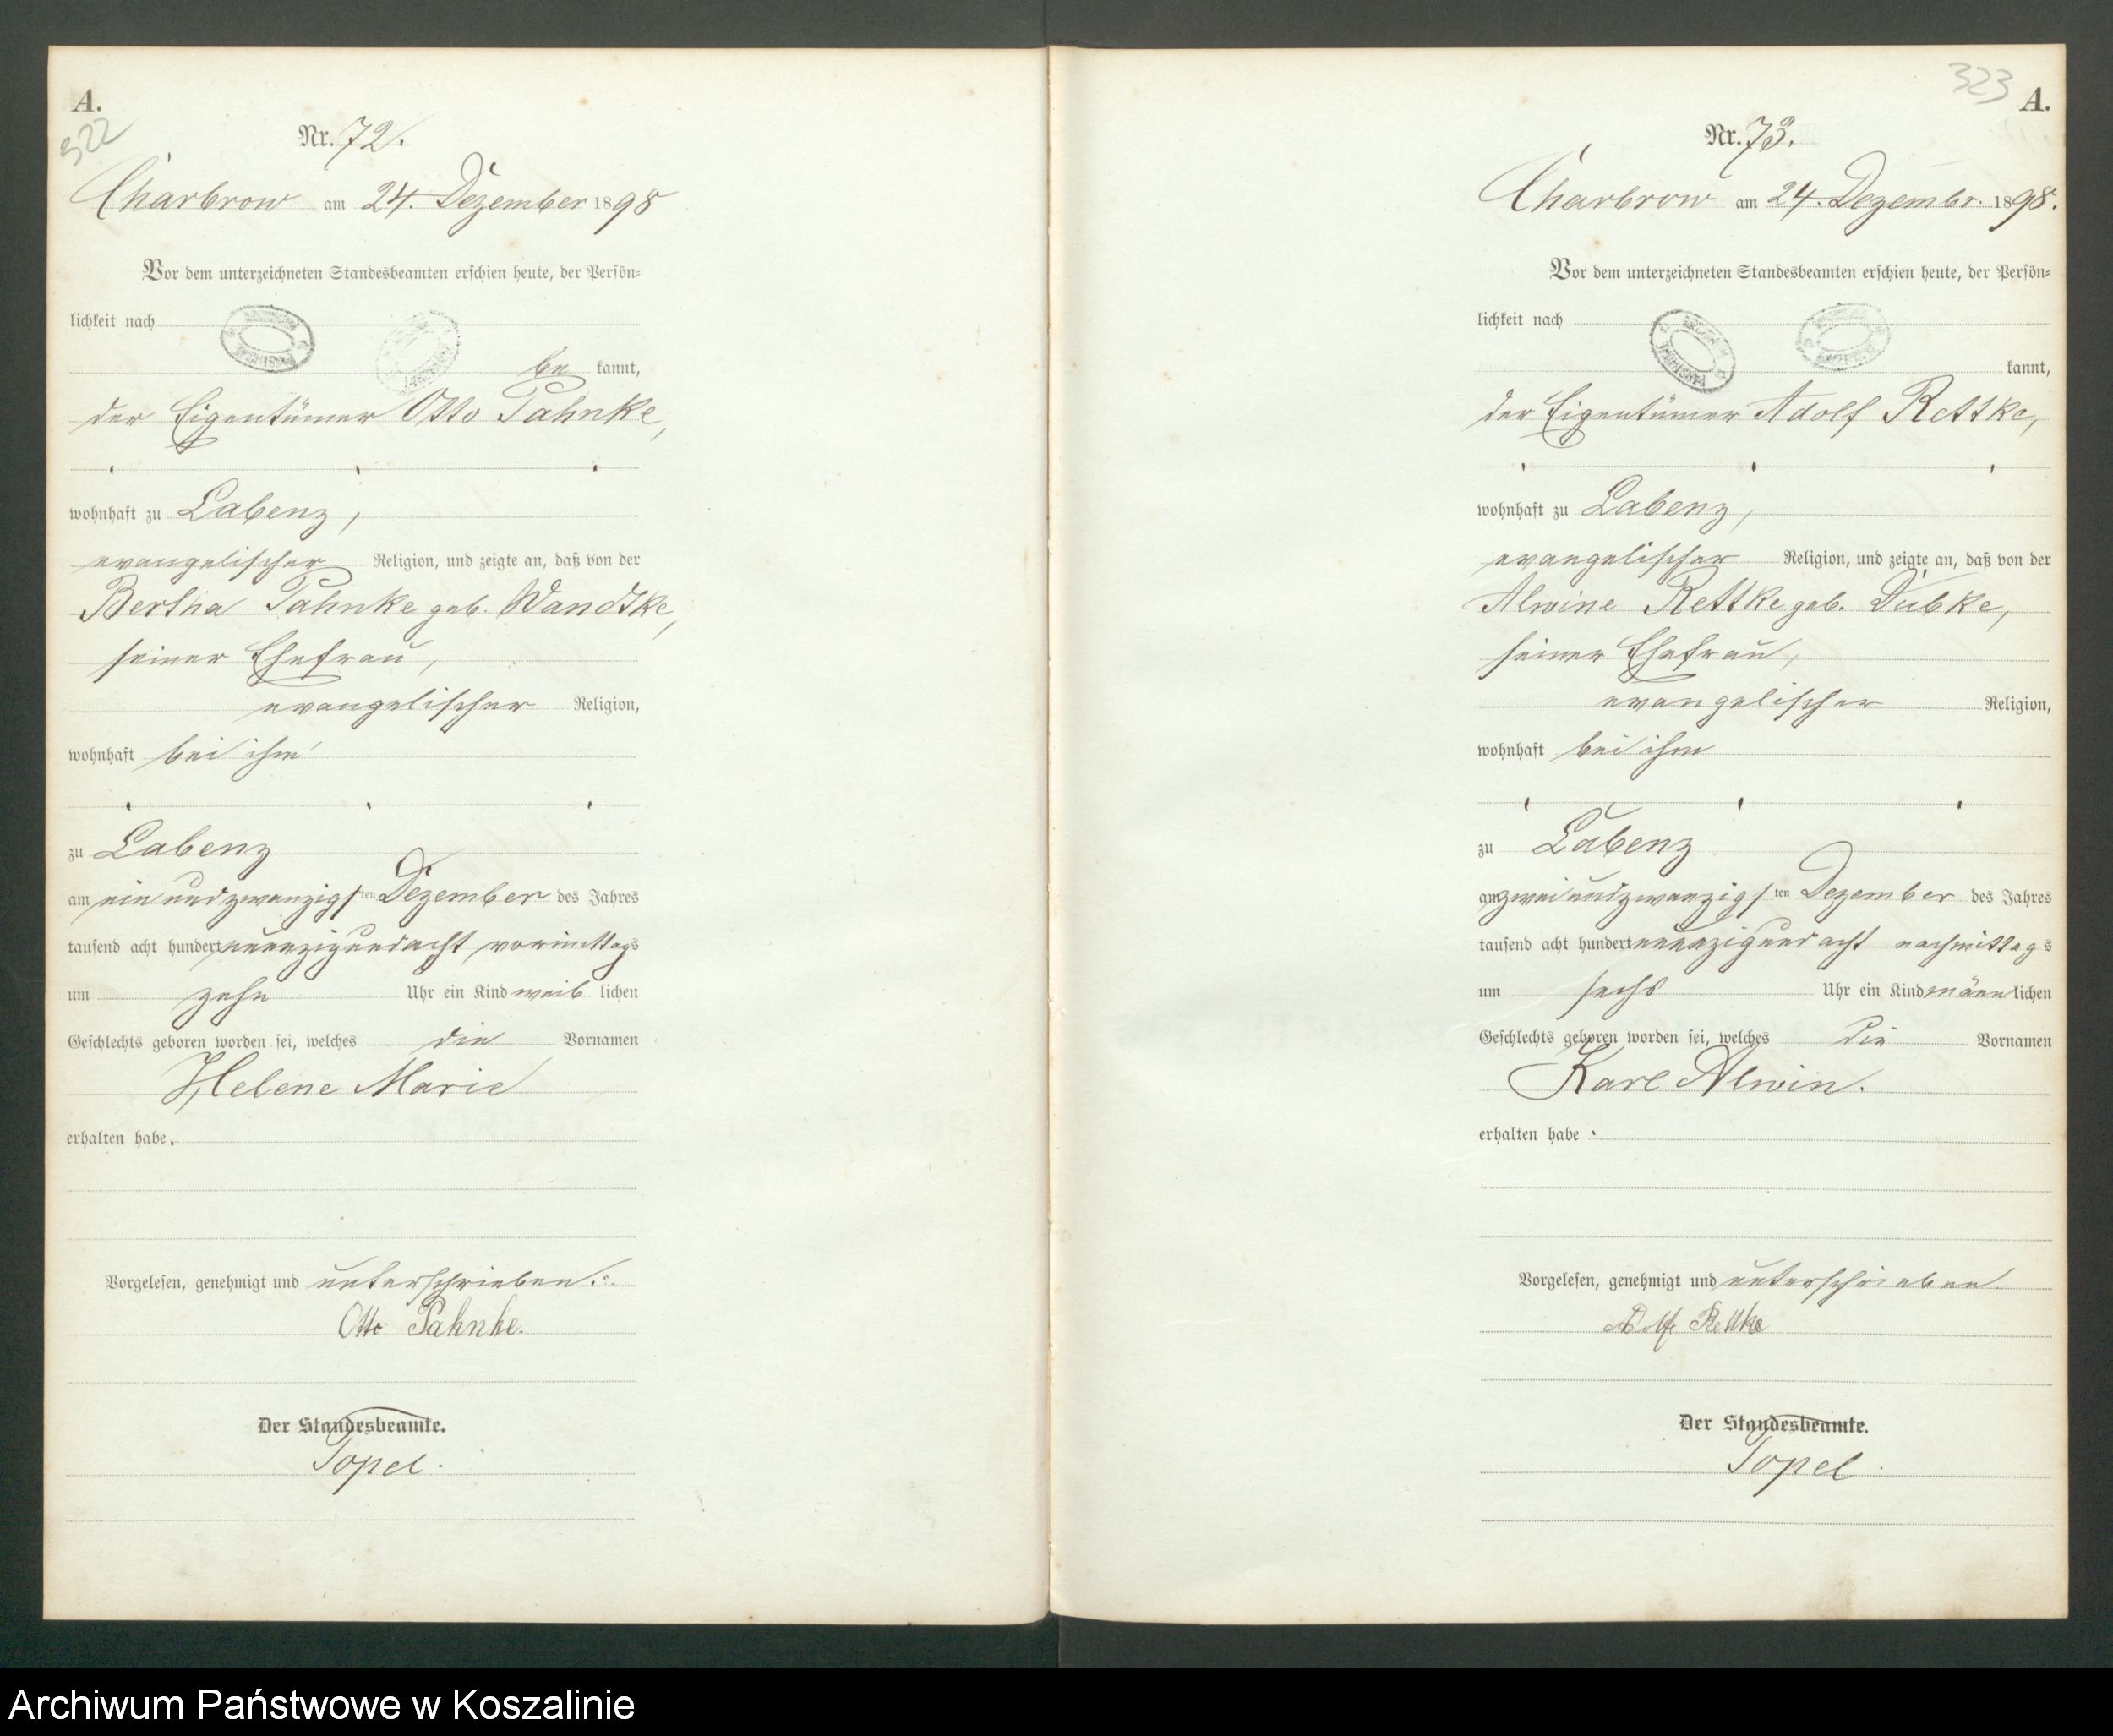 A.
322
Nr. 72.
Charbrow am 24. Dezember 1898
Vor dem unterzeichneten Standesbeamten erschien heute, der Persön-
lichkeit nach
be kannt,
der Eigentümer Otto Pahnke,
wohnhaft zu Labenz,
evangelischer Religion, und zeigte an, daß von der
Bertha Pahnke geb. Wandtke,
seiner Ehefrau,
evangelischer Religion,
wohnhaft bei ihm
zu Labenz
am einundzwanzigsten Dezember des Jahres
tausend acht hundert neunzigundacht vormittags
um zehn Uhr ein Kind weiblichen
Geschlechts geboren worden sei, welches die Vornamen
Helene Marie
erhalten habe.
Vorgelesen, genehmigt und unterschrieben.
Otto Pahnke.
Der Standesbeamte.
Topel.
323
A.
Nr. 73.
Charbrow am 24. Dezembr. 1898.
Vor dem unterzeichneten Standesbeamten erschien heute, der Persön-
lichkeit nach
kannt,
der Eigentümer Adolf Rettke,
wohnhaft zu Labenz,
evangelischer Religion, und zeigte an, daß von der
Alwine Rettke geb. Dubke,
seiner Ehefrau,
evangelischer Religion,
wohnhaft bei ihm
zu Labenz
am zweiundzwanzigsten Dezember des Jahres
tausend acht hundert neunzigundacht nachmittags
um sechs Uhr ein Kind männlichen
Geschlechts geboren worden sei, welches die Vornamen
Karl Alwin.
erhalten habe.
Vorgelesen, genehmigt und unterschrieben.
Adolf Rettke
Der Standesbeamte.
Topel.
Archiwum Państwowe w Koszalinie